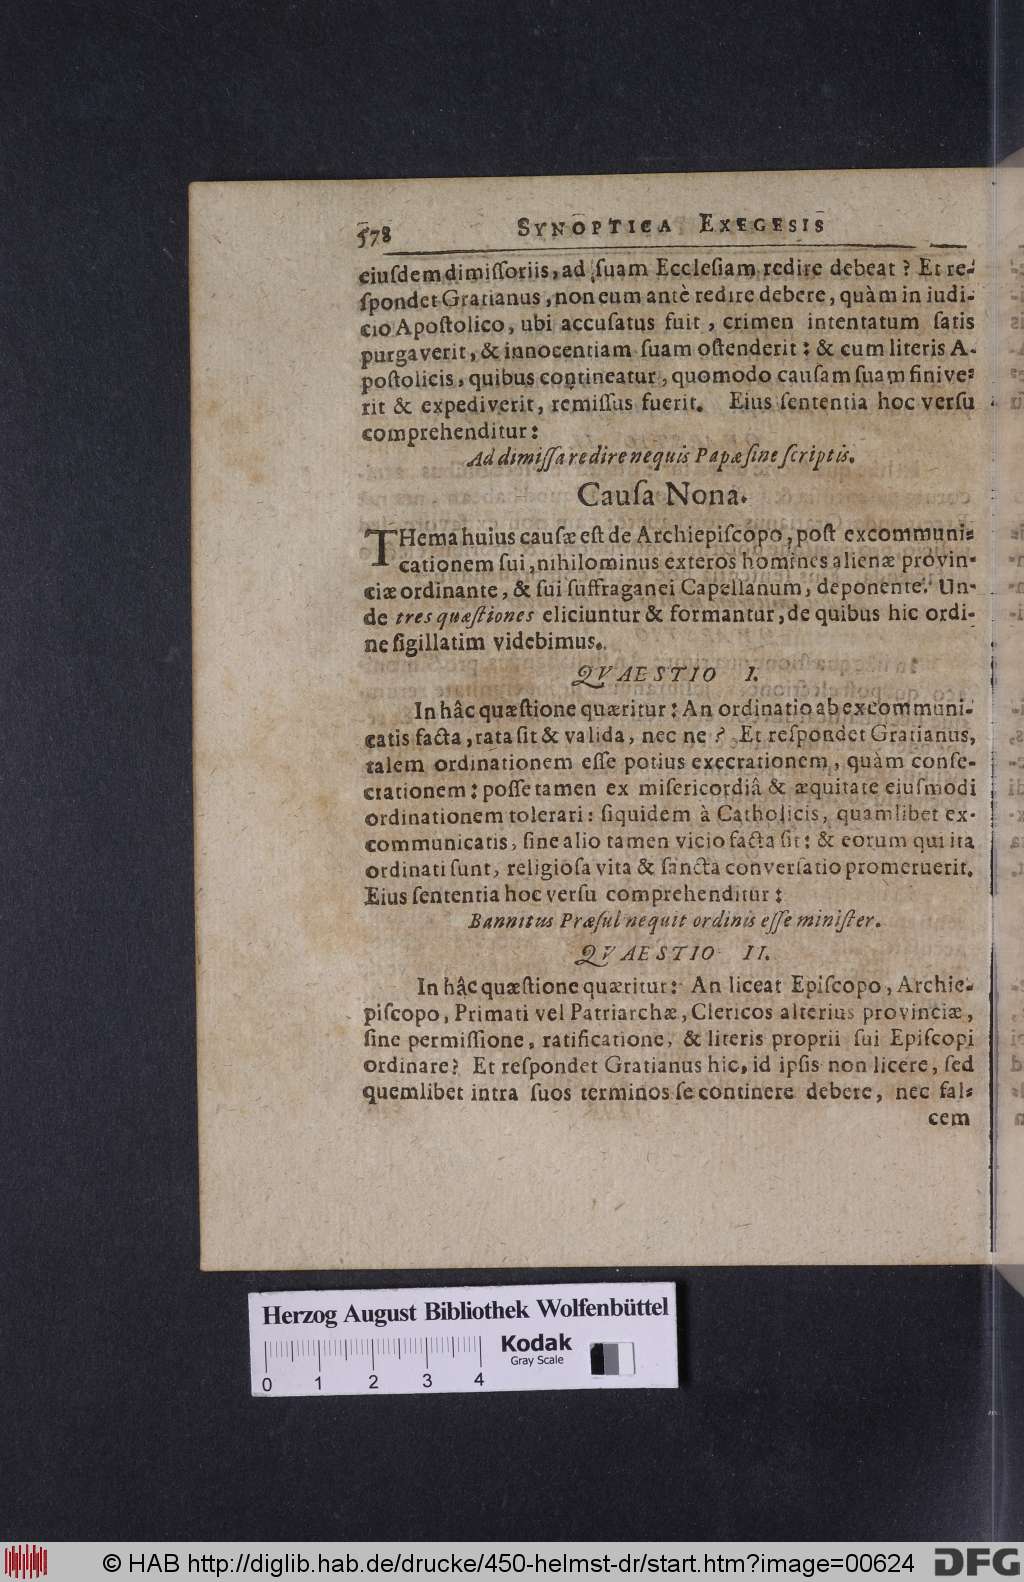 578 SYNOPTICA EXEGESIS
eiuſdem dimiſſoriis, ad ſuam Eccleſiam redire debeat? Et re-
ſpondet Gratianus, non eum antè redire debere, quàm in iudi-
cio Apoſtolico, ubi accuſatus fuit, crimen intentatum ſatis
purgaverit, & innocentiam ſuam oſtenderit: & cum literis A-
poſtolicis, quibus contineatur, quomodo cauſam ſuam finive-
rit & expediverit, remiſſus fuerit. Eius ſententia hoc verſu
comprehenditur:
Ad dimiſſa redire nequis Papæ ſine ſcriptis.
Cauſa Nona.
THema huius cauſæ eſt de Archiepiſcopo, poſt excommuni-
cationem ſui, nihilominus exteros homines alienæ provin-
ciæ ordinante, & ſui ſuffraganei Capellanum, deponente. Un-
de tres quæſtiones eliciuntur & formantur, de quibus hic ordi-
ne ſigillatim videbimus.
QVAESTIO I.
In hâc quæſtione quæritur: An ordinatio ab excommuni-
catis facta, rata ſit & valida, nec ne? Et reſpondet Gratianus,
talem ordinationem eſſe potius execrationem, quàm conſe-
crationem: poſſe tamen ex miſericordiâ & æquitate eiuſmodi
ordinationem tolerari: ſiquidem à Catholicis, quamlibet ex-
communicatis, ſine alio tamen vicio facta ſit: & eorum qui ita
ordinati ſunt, religioſa vita & ſancta converſatio promeruerit.
Eius ſententia hoc verſu comprehenditur:
Bannitus Præſul nequit ordinis eſſe miniſter.
QVAESTIO II.
In hâc quæſtione quæritur: An liceat Epiſcopo, Archie-
piſcopo, Primati vel Patriarchæ, Clericos alterius provinciæ,
ſine permiſſione, ratificatione, & literis proprii ſui Epiſcopi
ordinare? Et reſpondet Gratianus hic, id ipſis non licere, ſed
quemlibet intra ſuos terminos ſe continere debere, nec fal-
cem
Herzog August Bibliothek Wolfenbüttel
Kodak
Gray Scale
0 1 2 3 4
© HAB http://diglib.hab.de/drucke/450-helmst-dr/start.htm?image=00624
DFG